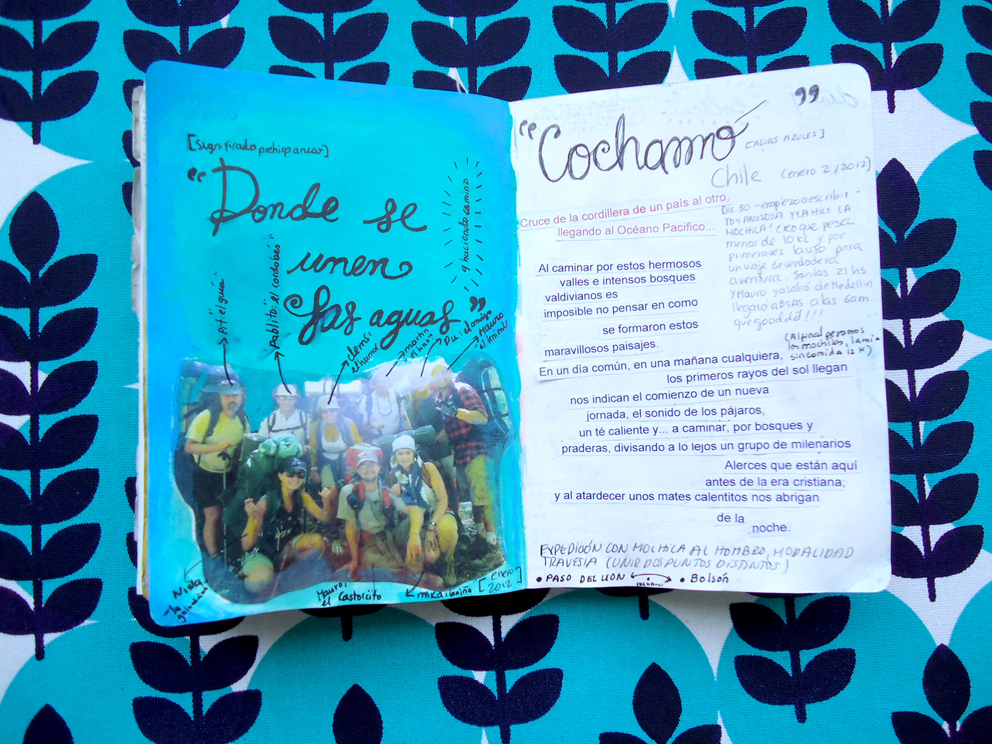 [significado prehispanico]
"Donde se
unen
las aguas"
y haciendo camino
"Atelgua"
pablito: el cordobés
[enero
2012]
Mauro,
el Castorcito
"Cochamó"
[AGUAS AZULES]
Chile (enero 2/2012)
Cruce de la cordillera de un país al otro,
llegando al Océano Pacífico...
Dic 30 - empiezo a escribir -
MOCHILA! creo que pesa
menos de 10 KL y por
primera vez la uso para
un viaje de verdadera
aventura. Son las 21 hs
y Mauro ya salió de Medellin
llegará a BSAS a las 6am
que gooddd!!!
(Al final pesamos
las mochilas, la mia
sin comida 12 K)
Al caminar por estos hermosos
valles e intensos bosques
valdivianos es
imposible no pensar en como
se formaron estos
maravillosos paisajes.
En un día común, en una mañana cualquiera,
los primeros rayos del sol llegan
nos indican el comienzo de un nueva
jornada, el sonido de los pájaros,
un té caliente y... a caminar, por bosques y
praderas, divisando a lo lejos un grupo de milenarios
Alerces que están aquí
antes de la era cristiana;
y al atardecer unos mates calentitos nos abrigan
de la
noche.
EXPEDICIÓN CON MOCHILA AL HOMBRO, MODALIDAD
TRAVESIA (UNIR DOS PUNTOS DISTINTOS)
• PASO DEL LEON • Bolsón